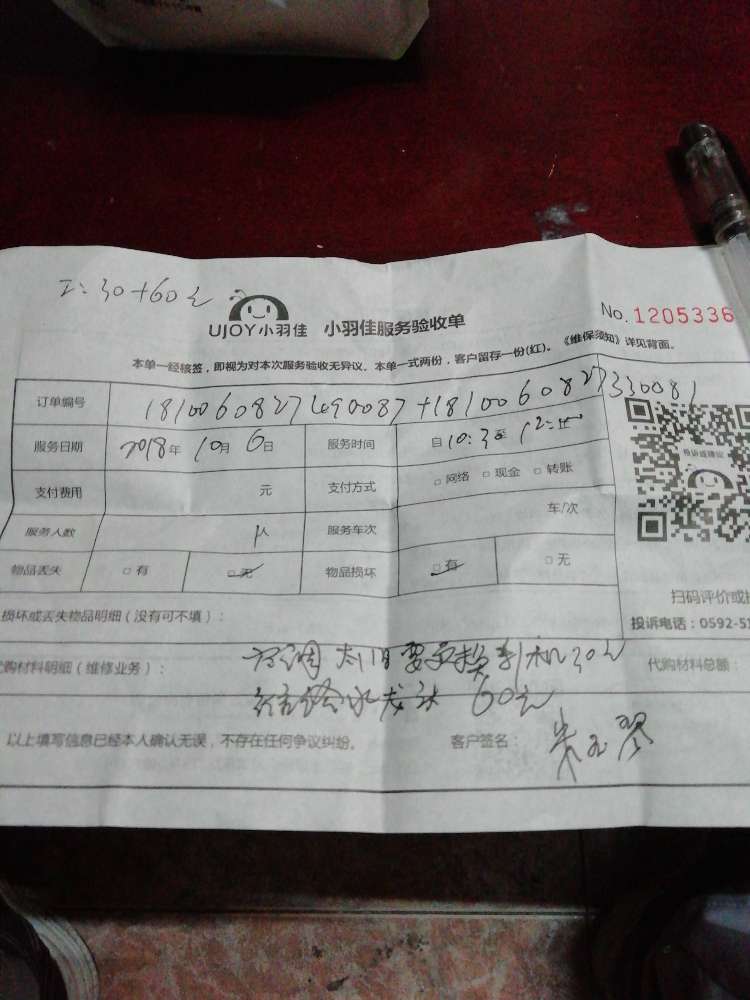 工:30+60元
UJOY小羽佳 小羽佳服务验收单
No. 1205336
本单一经核签，即视为对本次服务验收无异议。本单一式两份，客户留存一份(红)。《维保须知》详见背面。
订单编号 1810060827490087+1810060827330081
服务日期 2018年10月6日 服务时间 自10:30至12:
支付费用 元 支付方式 □网络 □现金 □转账
服务人数 人 服务车次 车/次
物品丢失 □有 □无 物品损坏 □有 □无
扫码评价或
损坏或丢失物品明细（没有可不填）：
投诉电话：0592-51
购材料明细（维修业务）： 空调太旧要更换 机30元
代购材料总额：
水龙头 60元
以上填写信息已经本人确认无误，不存在任何争议纠纷。 客户签名：